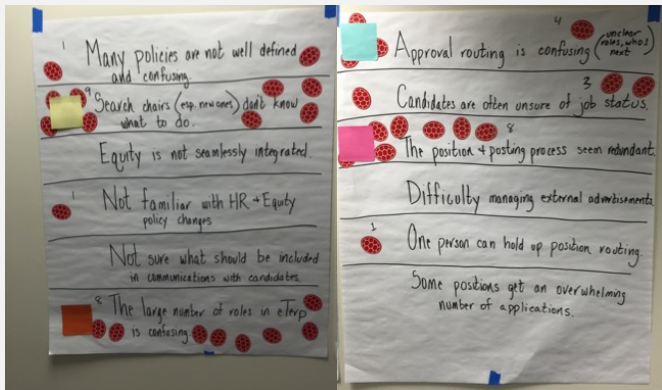 1
Many policies are not well defined
and confusing.
9
Search chairs (esp. new ones) don't know
what to do.
Equity is not seamlessly integrated.
1
Not familiar with HR + Equity
policy changes
Not sure what should be included
in communications with candidates.
8
The large number of roles in eTerp
is confusing.
4
Approval routing is confusing (unclear
roles, who's
next
3
Candidates are often unsure of job status.
8
The position + posting process seem redundant.
Difficulty managing external advertisements
1
One person can hold up position routing.
Some positions get an overwhelming
number of applications.